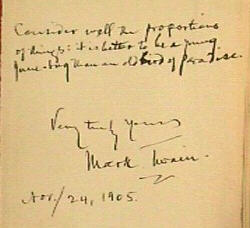 Consider well the proportions
of things: it is better to be a young
June-bug than an old bird of paradise.
Very truly yours
Mark Twain.
Nov/24, 1905.